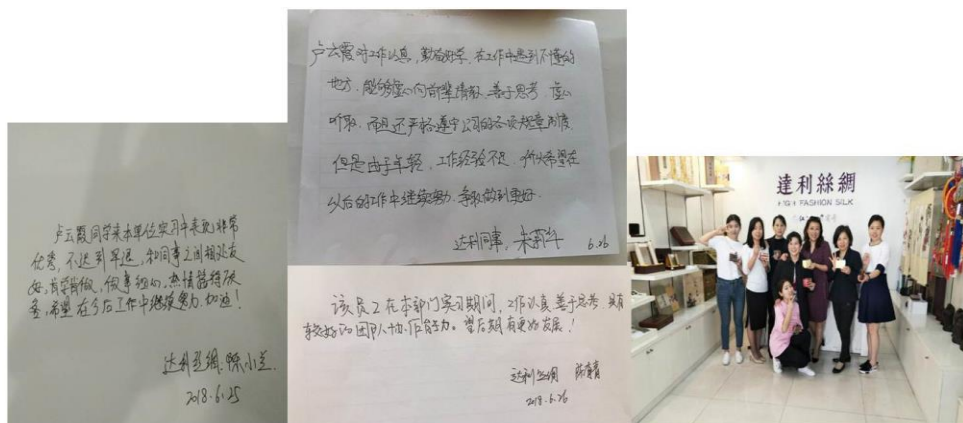 卢云霞同学来本单位实习中表现非常
优秀,不迟到早退,和同事之间相处友
好,肯学肯做,做事细心,热情接待顾
客,希望在今后工作中继续努力,加油!
达利丝绸,陈小兰
2018.6.25
卢云霞对工作认真,勤奋好学,在工作中遇到不懂的
地方,能够虚心向前辈请教、善于思考、虚心
听取,而且还严格遵守公司的各项规章制度
但是由于年轻,工作经验不足,所以希望在
以后的工作中继续努力,争取做到更好.
达利同事,朱
6.26
该员工在本部门实习期间,工作认真,善于思考,具有
较好的团队协作能力。望后期有更好发展!
达利丝绸 陈
2018.6.26
達利絲綢
HIGH FASHION SILK